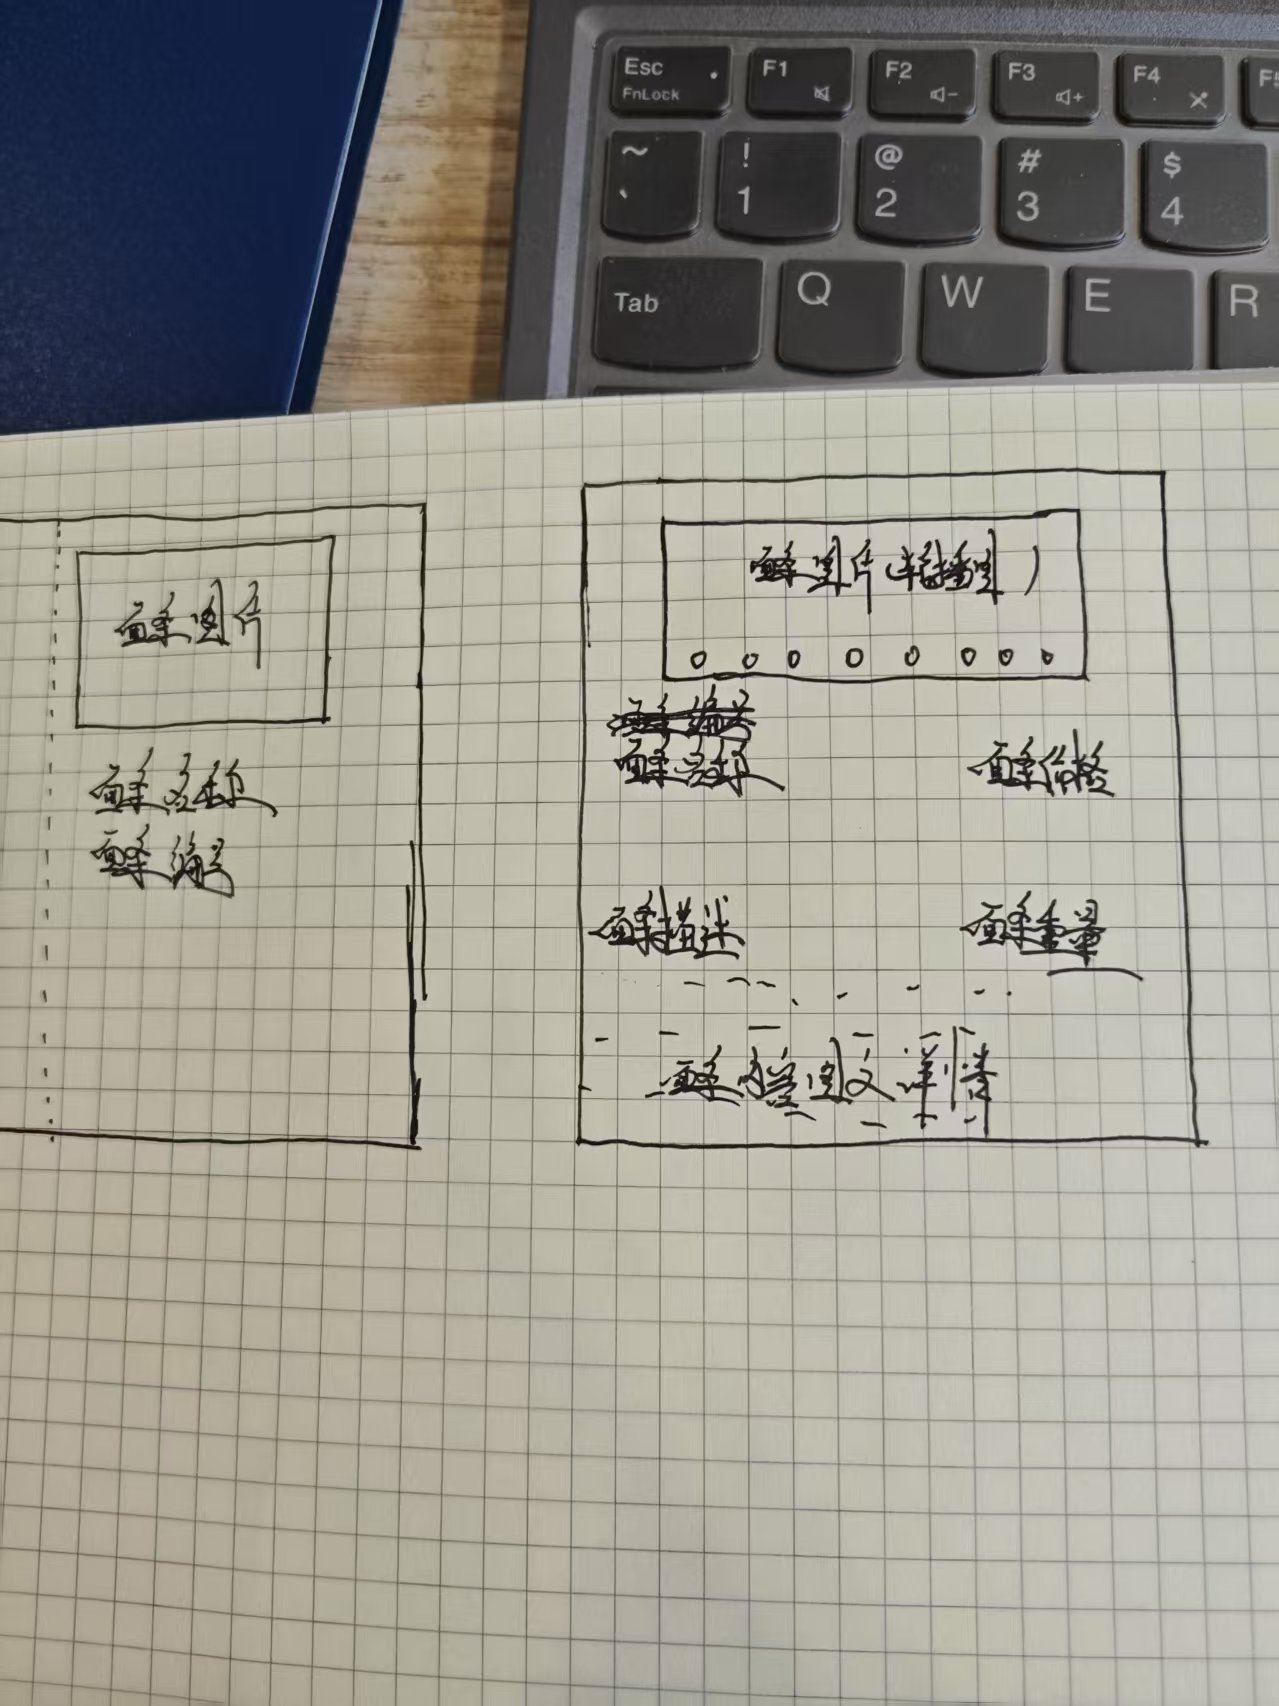 Esc
FnLock
F1
F2
F3
F4
~
`
!
1
@
2
#
3
$
4
Tab
Q
W
E
R
面条图片
面条名称
面条编号
面条图片(轮播图)
面条名称
面条价格
面条描述
面条重量
面条 图文详情